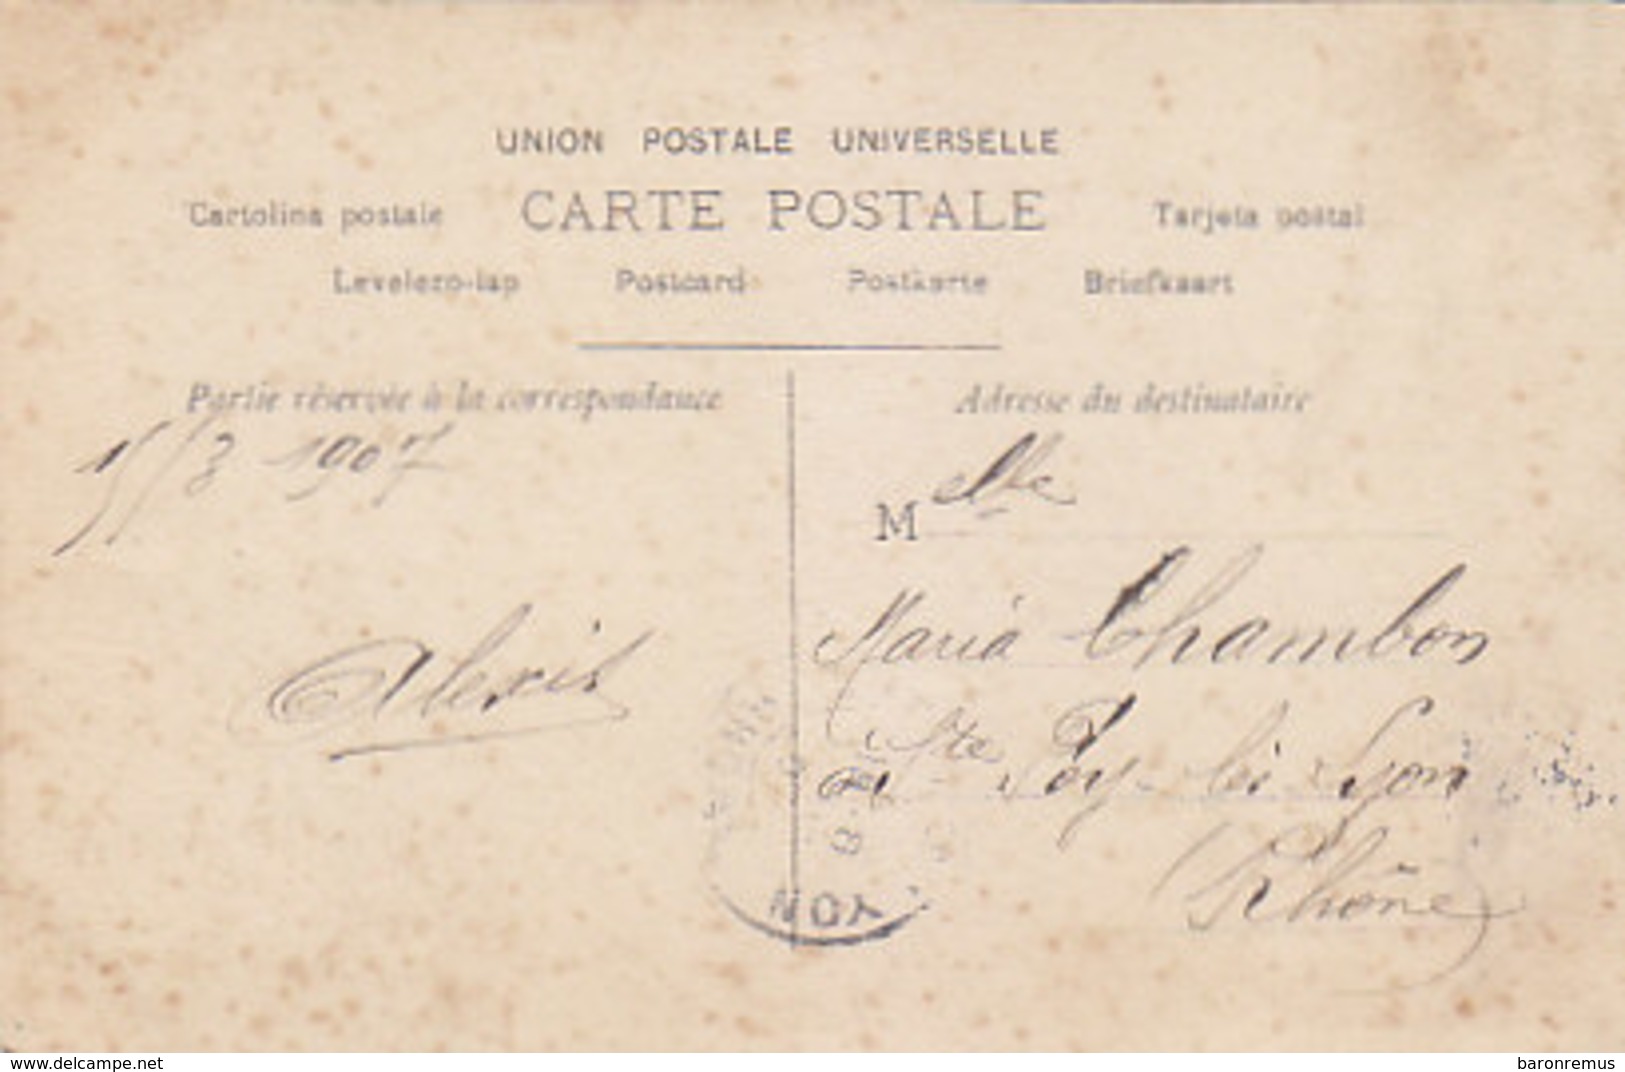 UNION POSTALE UNIVERSELLE
Cartolina postale CARTE POSTALE Tarjeta postal
Levelezo-lap Postcard Postkarte Briefkaart
Partie réservée à la correspondance
15/3 1907
Alexis
Adresse du destinataire
Melle
Maria Chambon
à Ste Foy-lès Lyon
Rhône
LYON
delcampe.net
baronremus